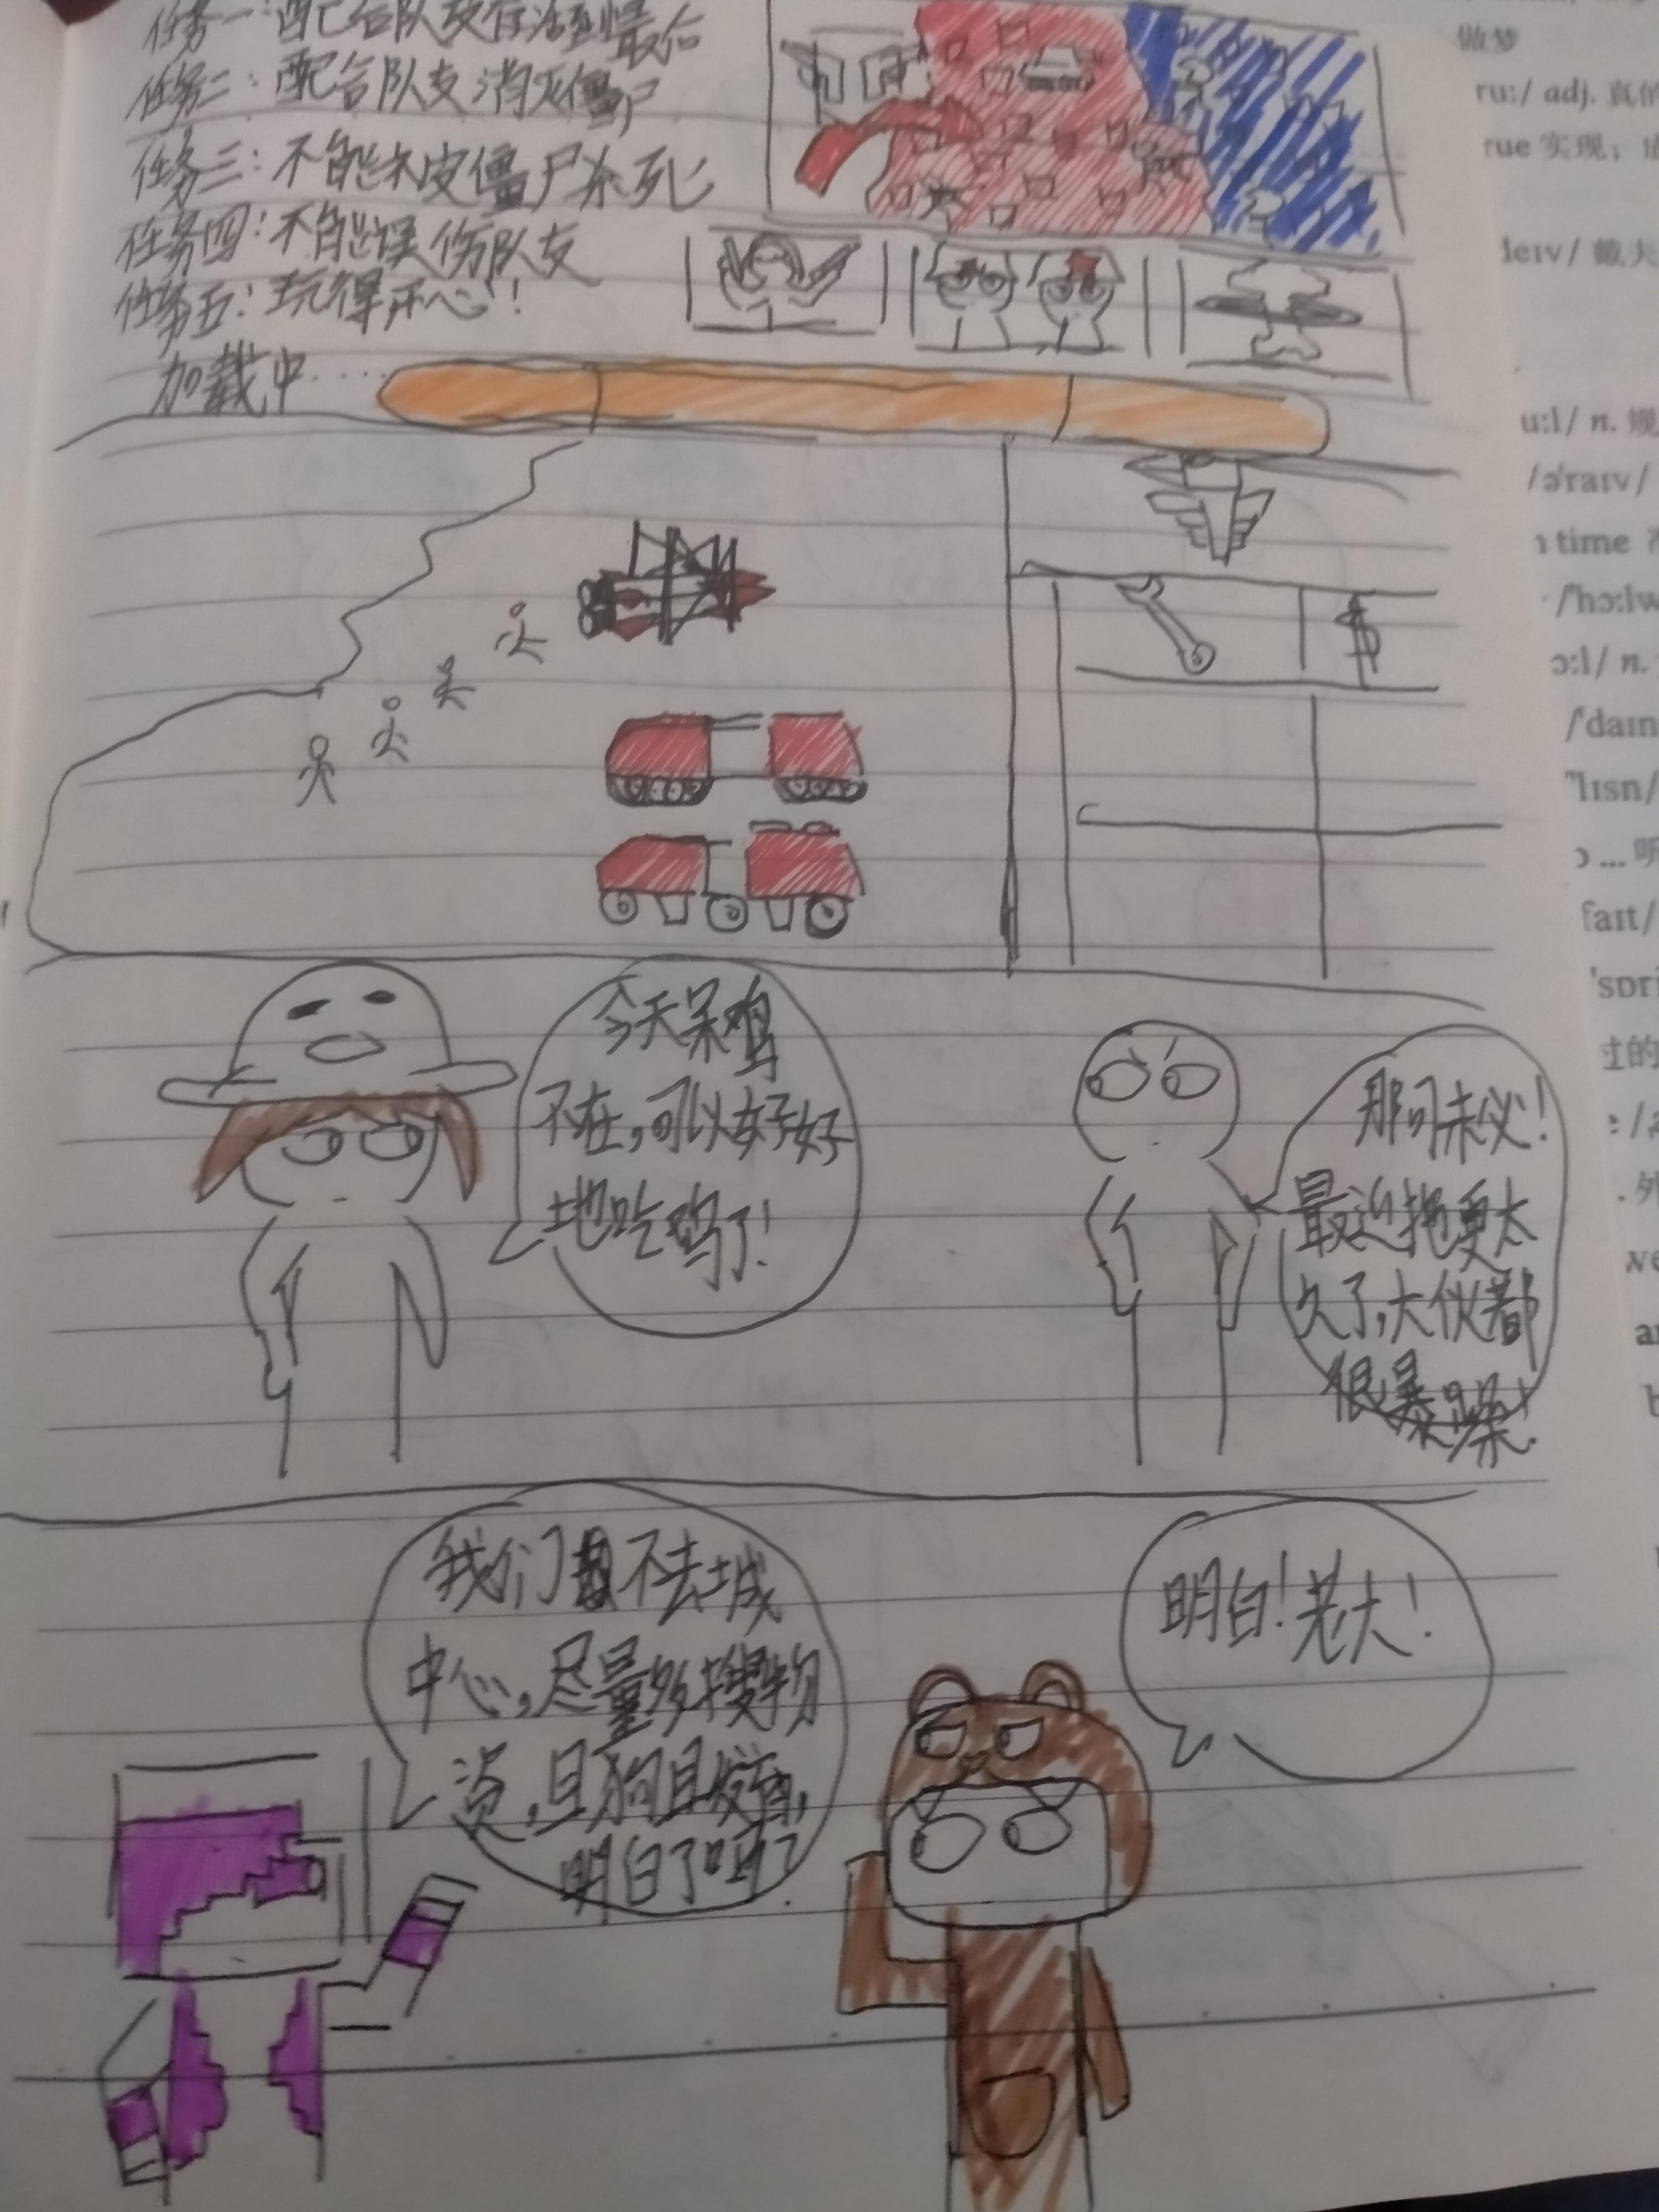 任务一：配合队友存活到最后
任务二：配合队友消灭僵尸
任务三：不能被僵尸杀死
任务四：不能误伤队友
任务五：玩得开心！
加载中·····
$
今天呆鸡
不在，可以好好
地吃鸡了！
那可未必！
最近拖更太
久了，大伙都
很暴躁！
我们不去城
中心，尽量多搜物
资，且狗且发育，
明白了吗？
明白！老大！
做梦
ru:/ adj. 真的
rue 实现；
deɪv/ 戴夫
u:l/ n.
/ə'raɪv/
time
/'hɔ:lw
ɔ:l/ n.
/'daɪn
'lɪsn/
... 听
faɪt/
'sprɪ
过的